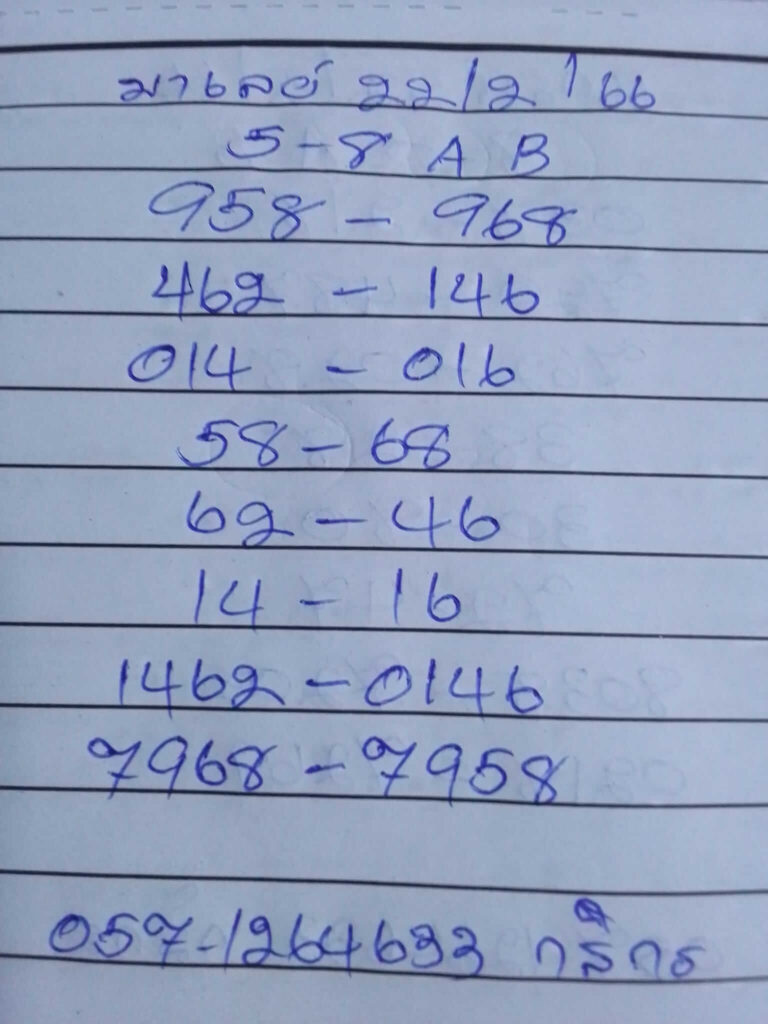 มาเลย์ 22/2/66
5-8 A B
958 - 968
462 - 146
014 - 016
58 - 68
62 - 46
14 - 16
1462 - 0146
7968 - 7958
057-1264633 กสิกร